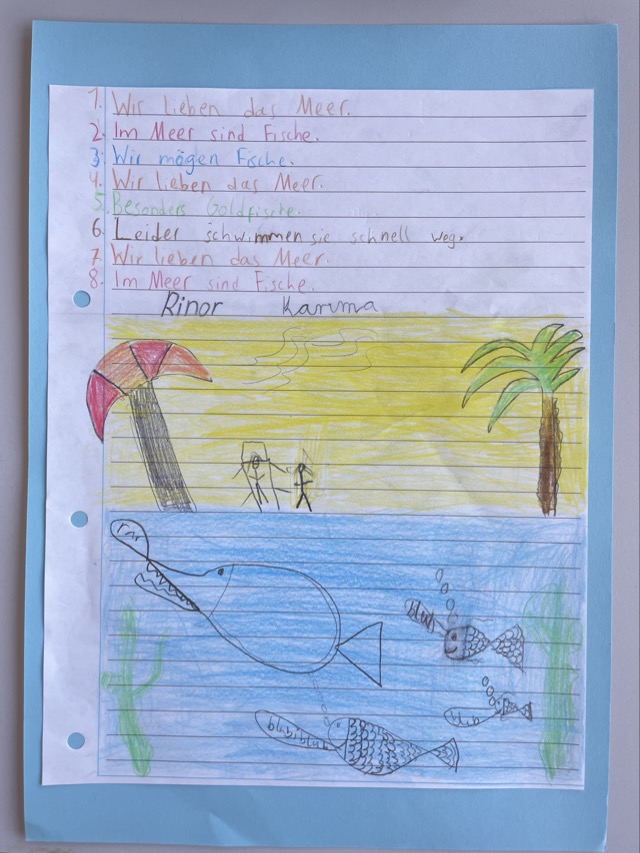 1. Wir lieben das Meer.
2. Im Meer sind Fische.
3. Wir mögen Fische.
4. Wir lieben das Meer.
5. Besonders Goldfische.
6. Leider schwimmen sie schnell weg.
7. Wir lieben das Meer.
8. Im Meer sind Fische.
Rinor Karima
rar
blub
blub
blubiblub